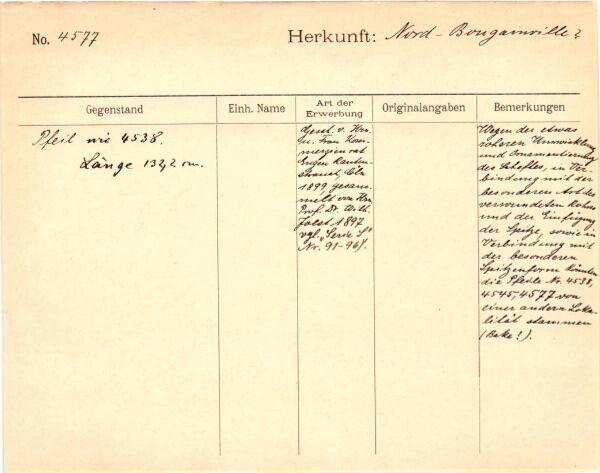 No. 4577
Herkunft: Nord-Bougainville?
Gegenstand
Einh. Name
Art der Erwerbung
Originalangaben
Bemerkungen
Pfeil wie 4538.
Länge 132,2 cm.
Gesch. v. Hrn.
u. Frau Kom-
merzienrat
Eugen Rauten-
strauch, Cln
1899, gesam-
melt von Hrn.
Prof. Dr. Wilh.
Joest 1897
vgl. "Serie S"
Nr. 91-96).
Wegen der etwas
roheren Umwicklung
und Ornamentierung
des Schaftes, in Ver-
bindung mit der
besonderen Art des
verwendeten Rohrs
und der Einfügung
der Spitze, sowie in
Verbindung mit
der besonderen
Spitzenform könnten
die Pfeile Nr. 4538,
4545, 4577 von
einer andern Loka-
lität stammen
(Buka?).